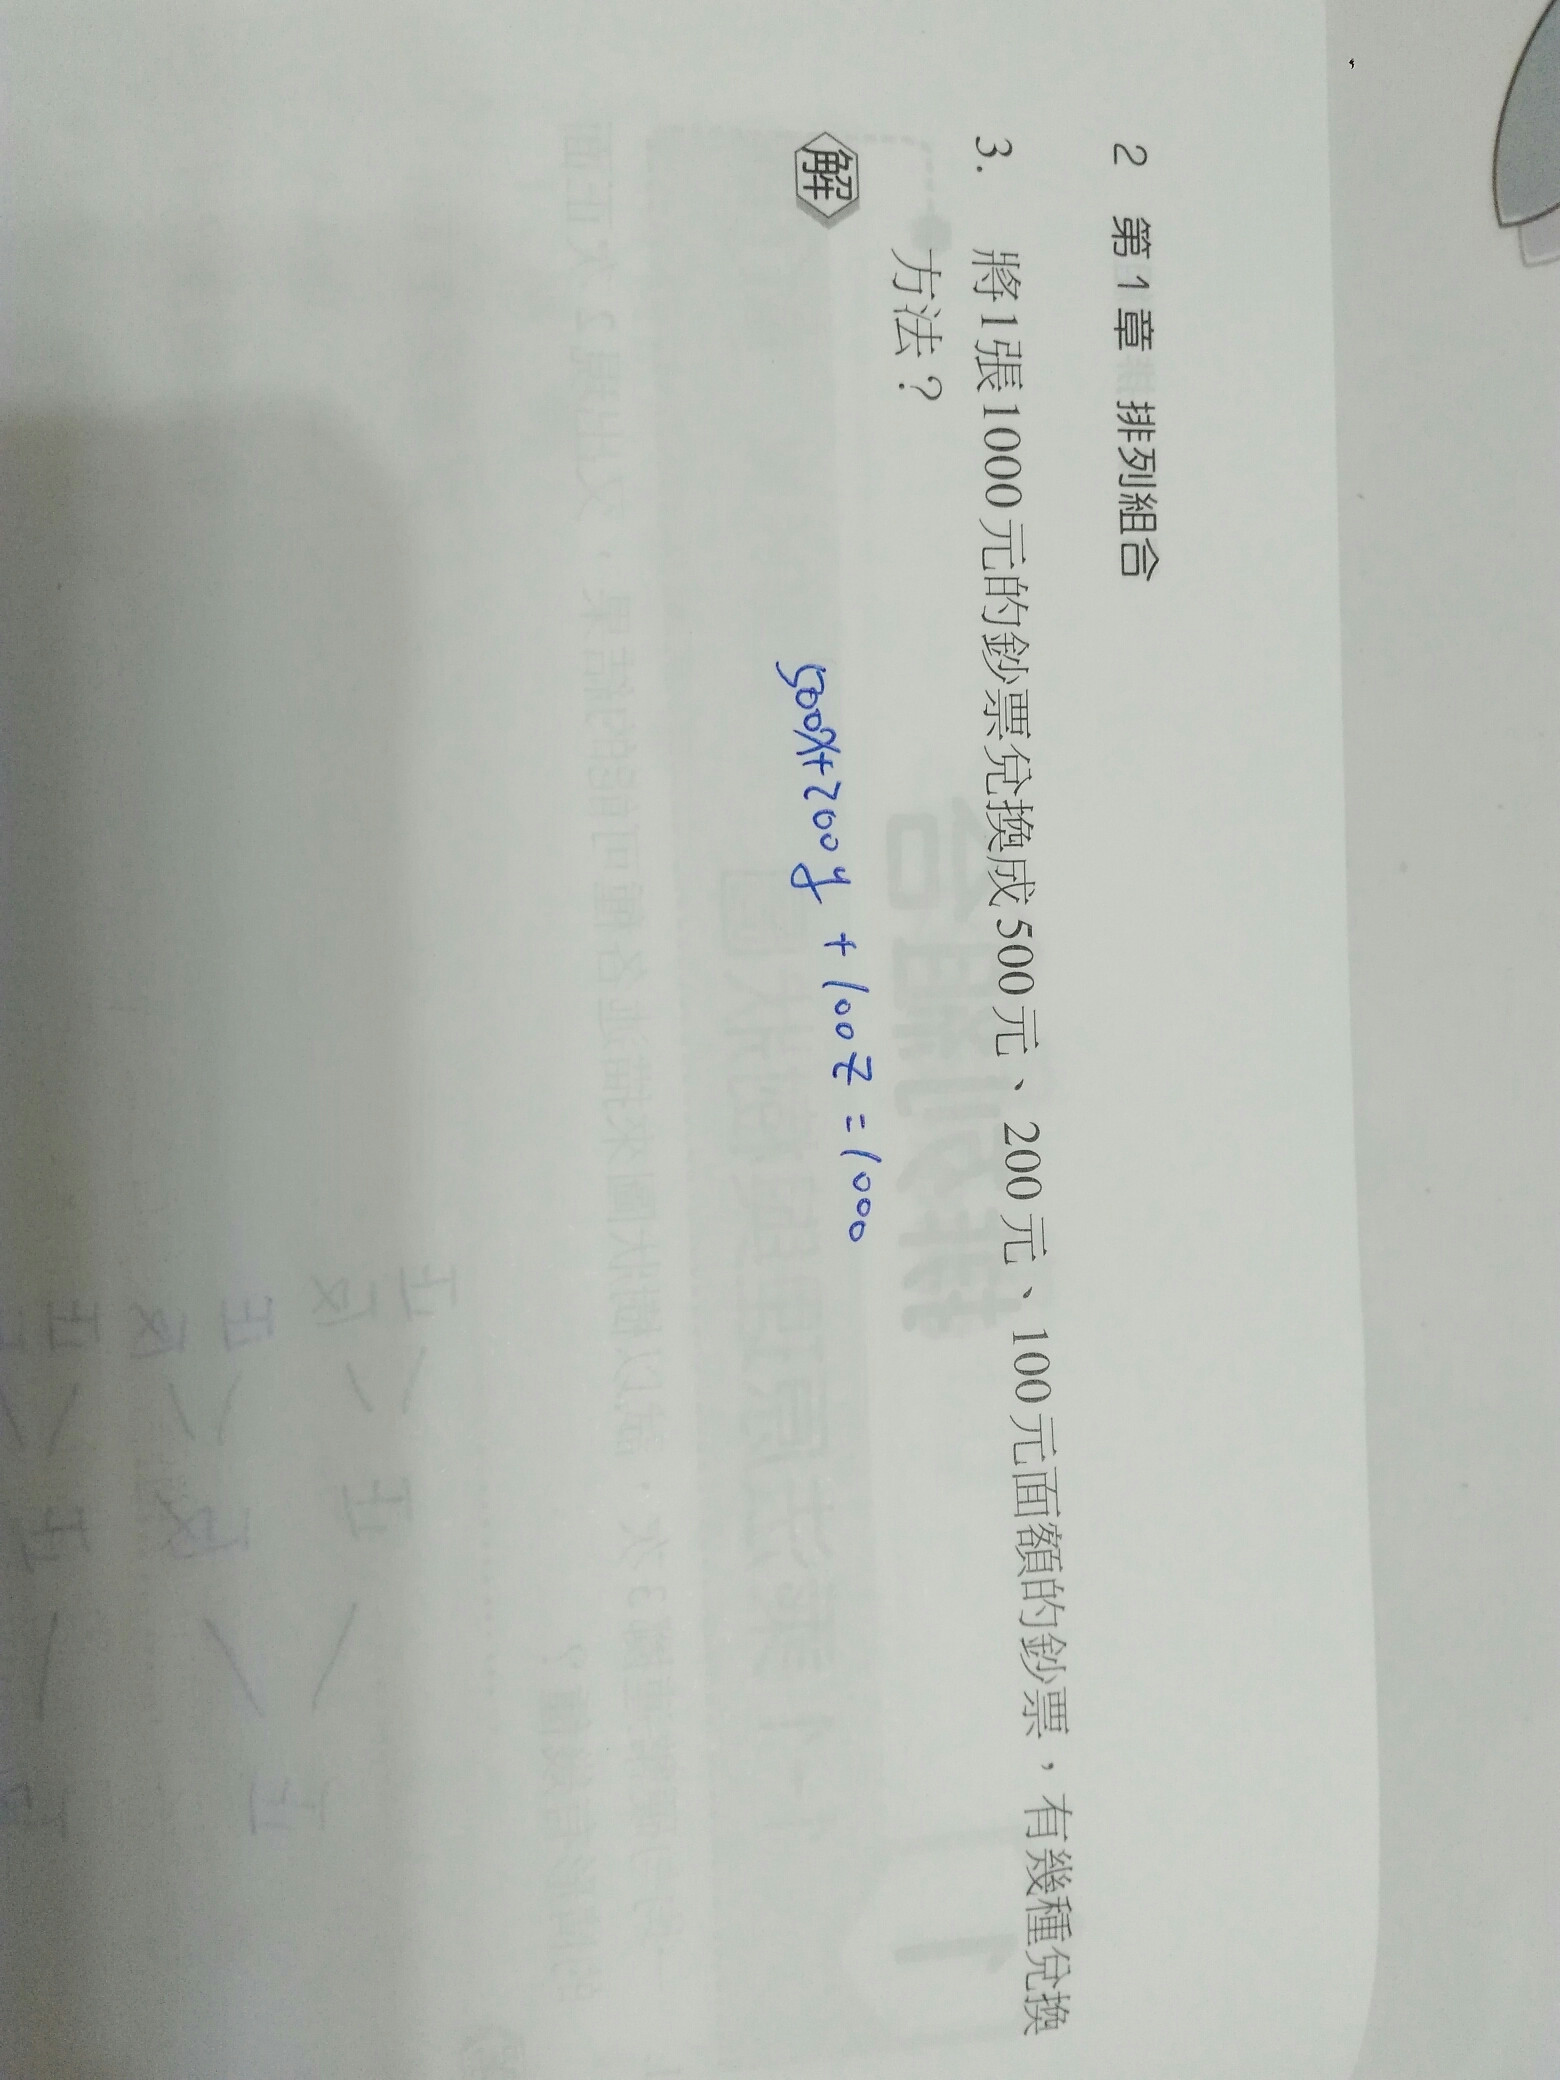 2 第1章 排列組合
3. 將1張1000元的鈔票兌換成500元、200元、100元面額的鈔票，有幾種兌換
方法？
解
500x+200y+100z=1000